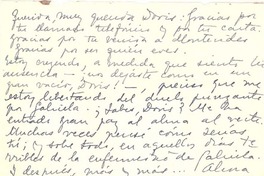 Querida, muy querida Doris: Gracias por
tu llamado telefónico y por tu carta.
gracias por tu venida a Montevideo
gracias por ser quién eres.
Estoy cuyendo, a medida que siento tu
ausencia — ¡nos dejaste con un
gran vacío, Doris! — , pienso que me
estoy libertando del duelo punzante
por Gabriela. ¿Sabes, Doris? Me ha
entrado gran paz al alma al verte.
Muchas veces pensé cómo serías
tú; y sobre todo, en aquellos días te-
rribles de la enfermedad de Gabriela.
I después, más y más... Alma